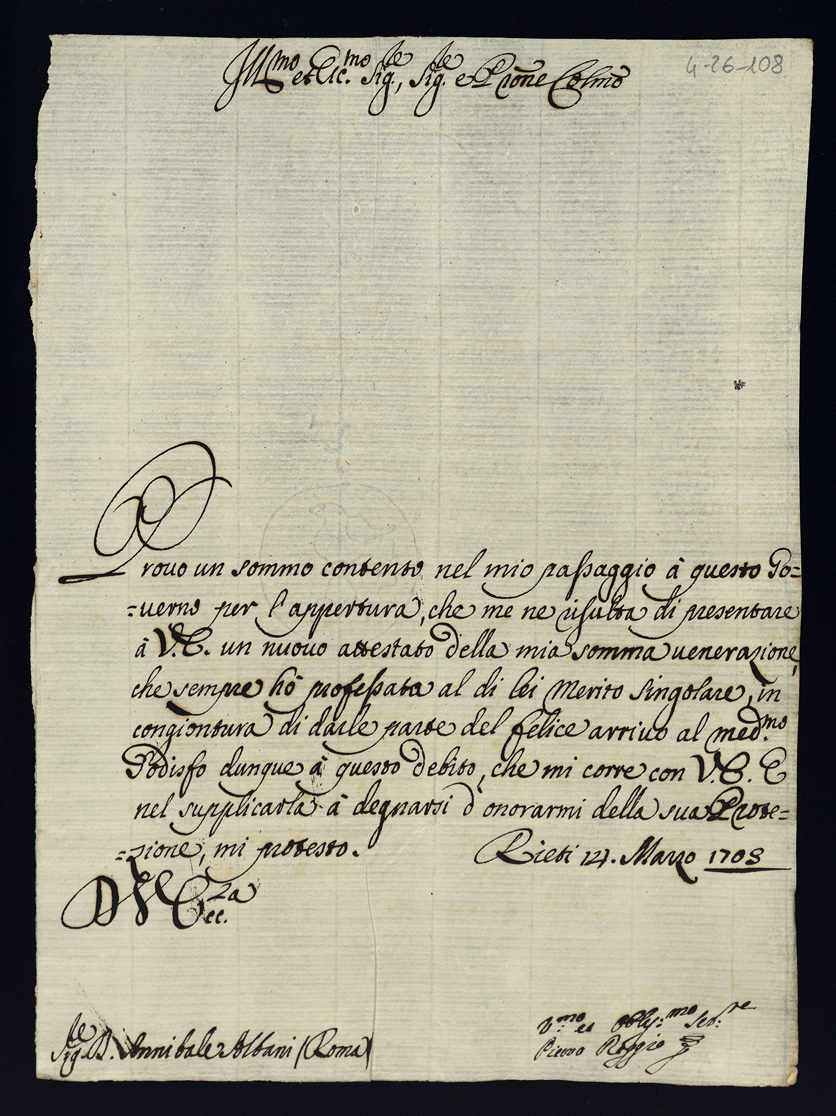 4-26-108
Ill.mo et Ecc.mo Sig.re, Sig.re e P'rone Colmo
Provo un sommo contento nel mio passaggio à questo Go=
=verno per l'appertura, che me ne risulta di presentare
à V.E. un nuovo attestato della mia somma venerazione,
che sempre hò professata al di lei Merito singolare, in
congiontura di darle parte del felice arrivo al med.mo
Sodisfo dunque à questo debito, che mi corre con V.E. E
nel supplicarla à degnarsi d'onorarmi della sua Prote=
=zione, mi protesto.
Rieti 14. Marzo 1708
D V Ecc.za
Sig.re D. Annibale Albani (Roma)
V.mo et Oblig.mo Ser.re
Pietro Reggio